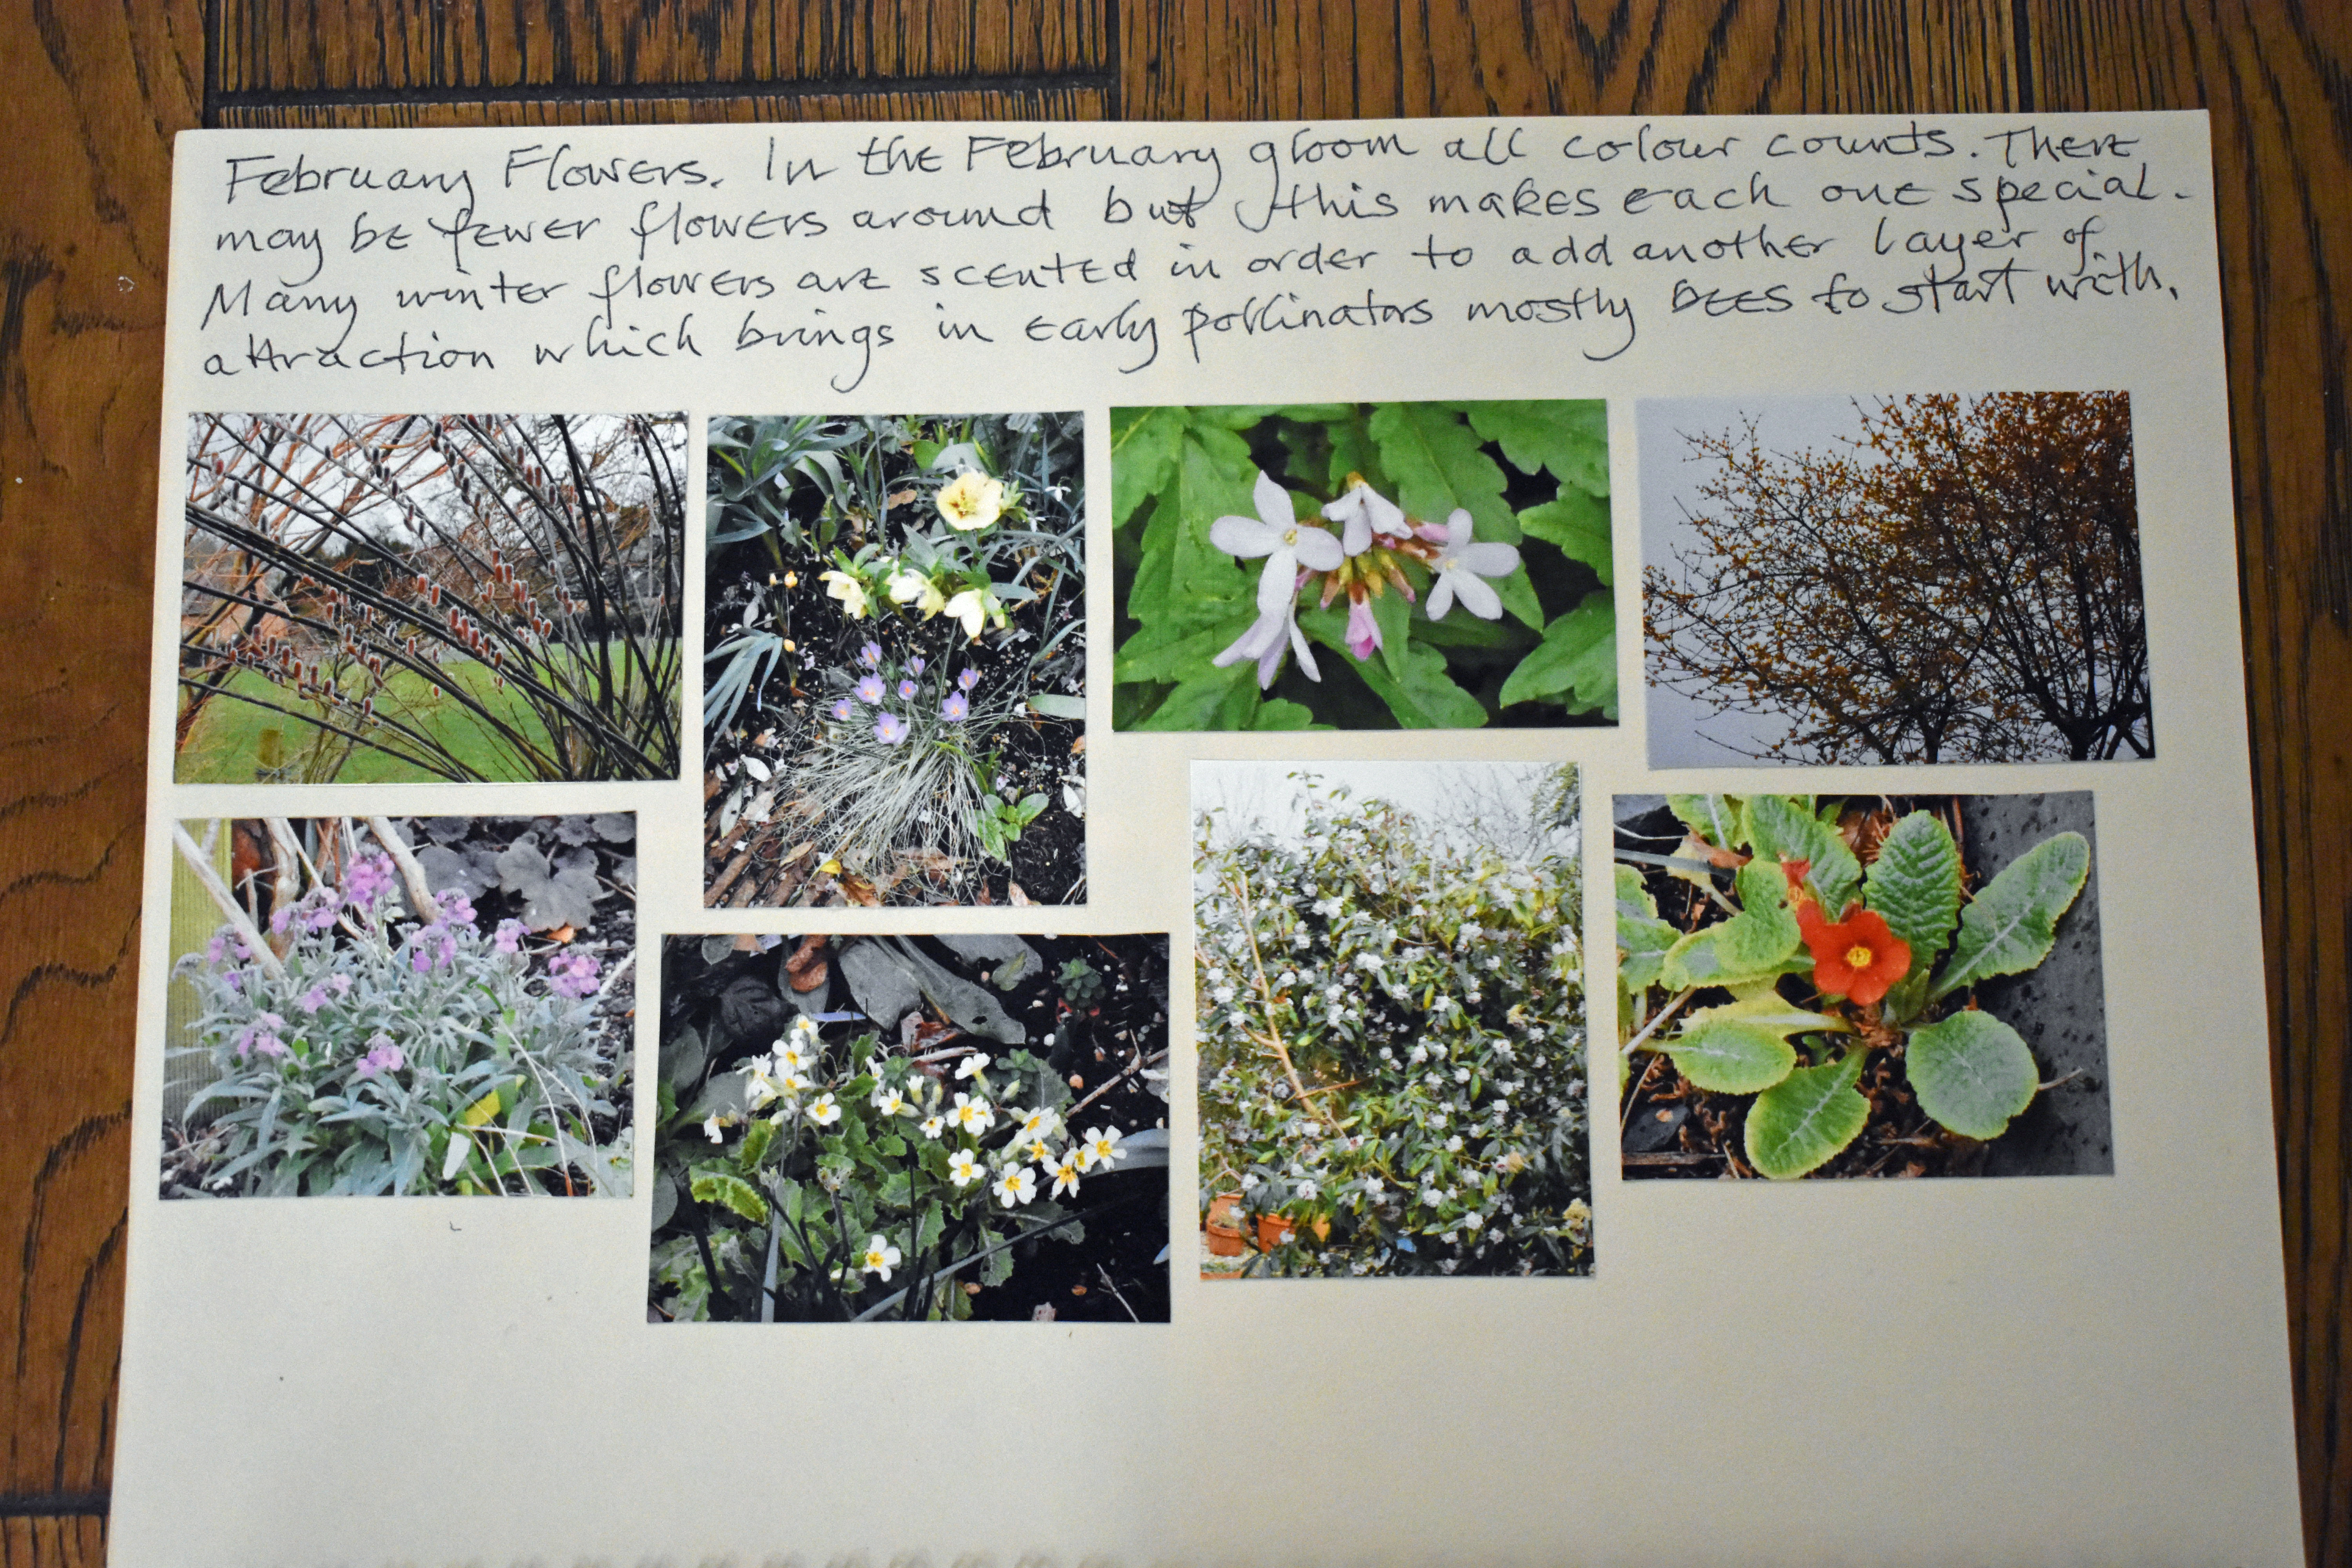 February Flowers. In the February gloom all colour counts. There
may be fewer flowers around but this makes each one special.
Many winter flowers are scented in order to add another layer of
attraction which brings in early pollinators mostly bees to start with.